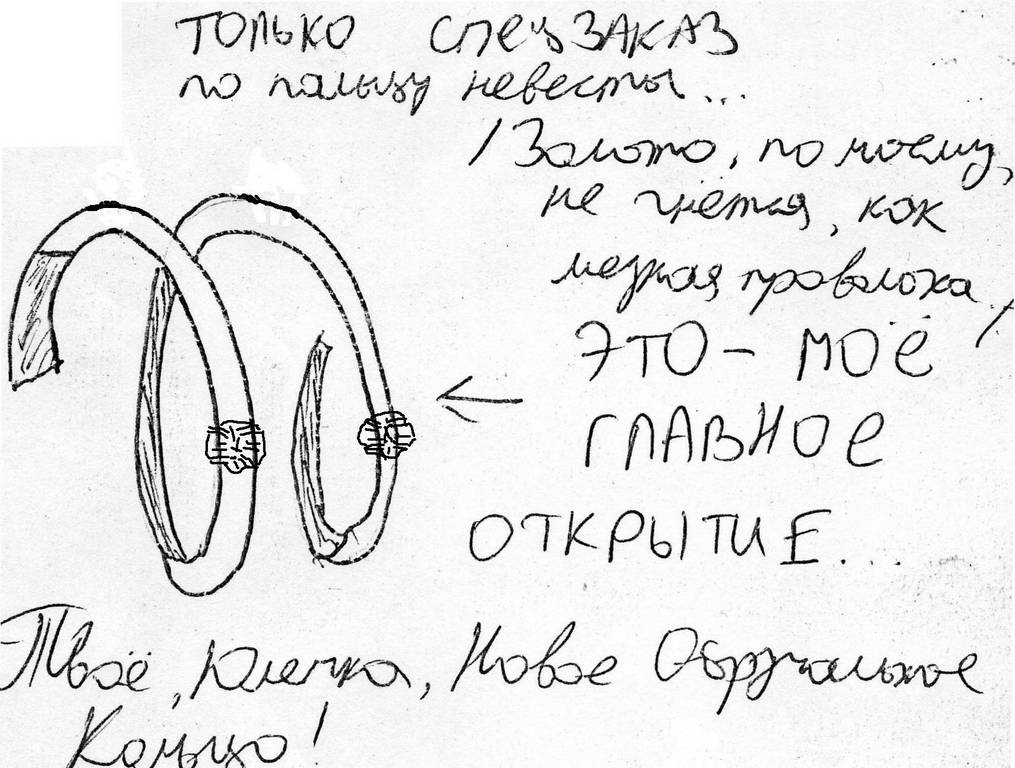 ТОЛЬКО СПЕЦЗАКАЗ
по пальцу невесты...
/Золото, по моему,
не гнётся, как
медная проволока./
ЭТО - МОЁ
ГЛАВНОЕ
ОТКРЫТИЕ...
Твоё, Юлечка, Новое Обручальное
Кольцо!